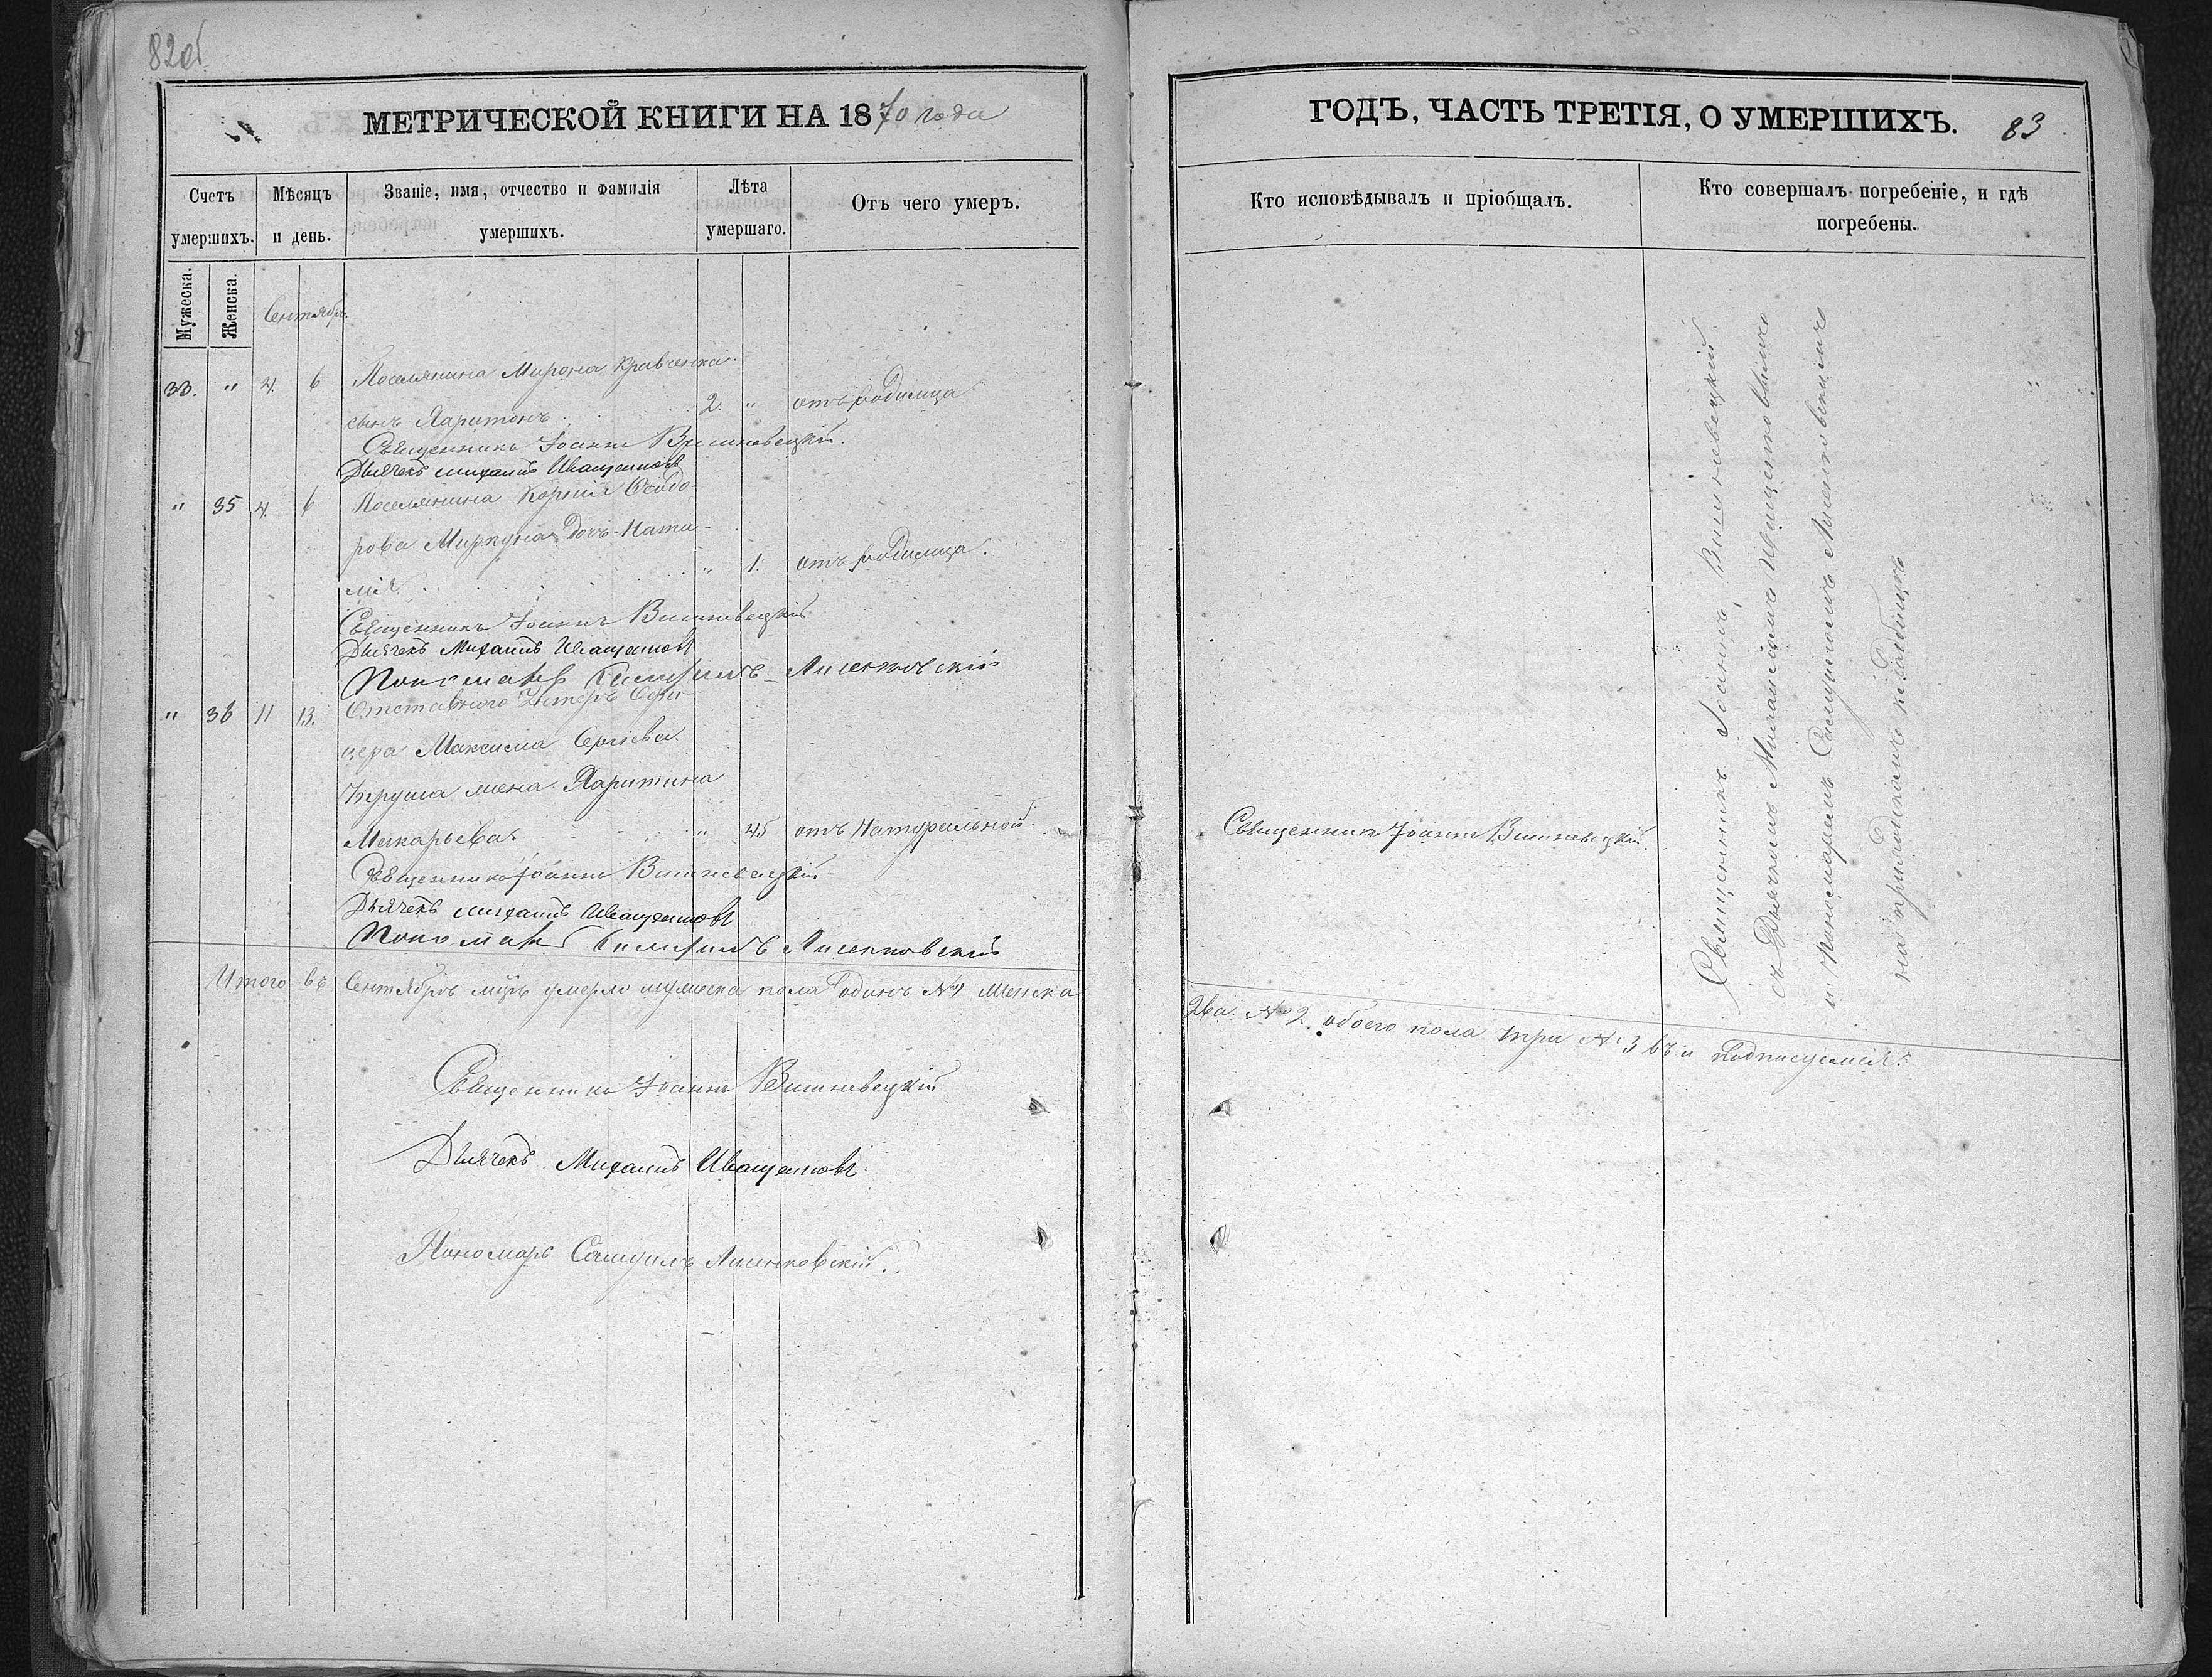 82об
МЕТРИЧЕСКОЙ КНИГИ НА 1870 года
Счетъ умершихъ.
Мѣсяцъ и день.
Званіе, имя, отчество и фамилія умершихъ.
Лѣта умершаго.
Отъ чего умеръ.
Мужеска.
Женска.
Сентябрь.
33. " 4. 6 Поселянина Мирона Кравченка
сынъ Харитонъ 2. " отъ родимца
Священникъ Іоаннъ Вишневецкій.
Дьячекъ Михаилъ Иващенковъ
" 35 4. 6 Поселянина Корнія Ѳеодо-
рова Миркуна дочь Ната-
лія " 1. отъ родимца.
Священникъ Іоаннъ Вишневецкій
Дьячекъ Михаилъ Иващенковъ
Пономарь Самуилъ Лисенковскій
" 36 11 13. Отставного Унтеръ Офи-
цера Максима Сергіева
жена Харитина
Макарьева " 45 отъ Натуральной
Священникъ Іоаннъ Вишневецкій
Дьячекъ Михаилъ Иващенковъ
Пономарь Самуилъ Лисенковскій
Итого въ Сентябрѣ мцѣ умерло мужеска пола одинъ №1 женска
Священникъ Іоаннъ Вишневецкій
Дьячекъ Михаилъ Иващенковъ
Пономарь Самуилъ Лисенковскій.
ГОДЪ, ЧАСТЬ ТРЕТІЯ, О УМЕРШИХЪ. 83
Кто исповѣдывалъ и пріобщалъ.
Кто совершалъ погребеніе, и гдѣ
погребены.
Священникъ Іоаннъ Вишневецкій.
Священникъ Іоаннъ Вишневецкій
съ Дьячкомъ Михаиломъ Иващенковымъ
и Пономаремъ Самуиломъ Лисенковскимъ
на приходскомъ кладбищѣ
два. №2. обоего пола три №3 въ и подписуемся: